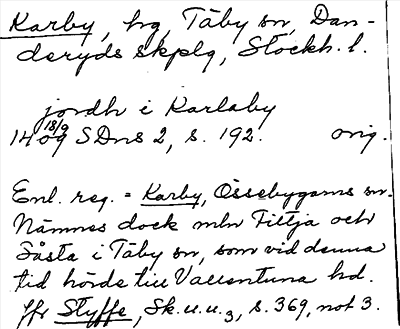 Karby, hg, Täby sn, Dan-
deryds skplg, Stockh. l.
jordh i Karlaby
14 18/9 09 SDns 2, s. 192. orig.
Enl. reg. = Karby, Össebygarns sn.
Nämnes dock mln Tittja och
Såsta i Täby sn, som vid denna
tid hörde till Vallentuna hd.
Jfr Styffe, Sk.u.u.3, s. 369, not 3.